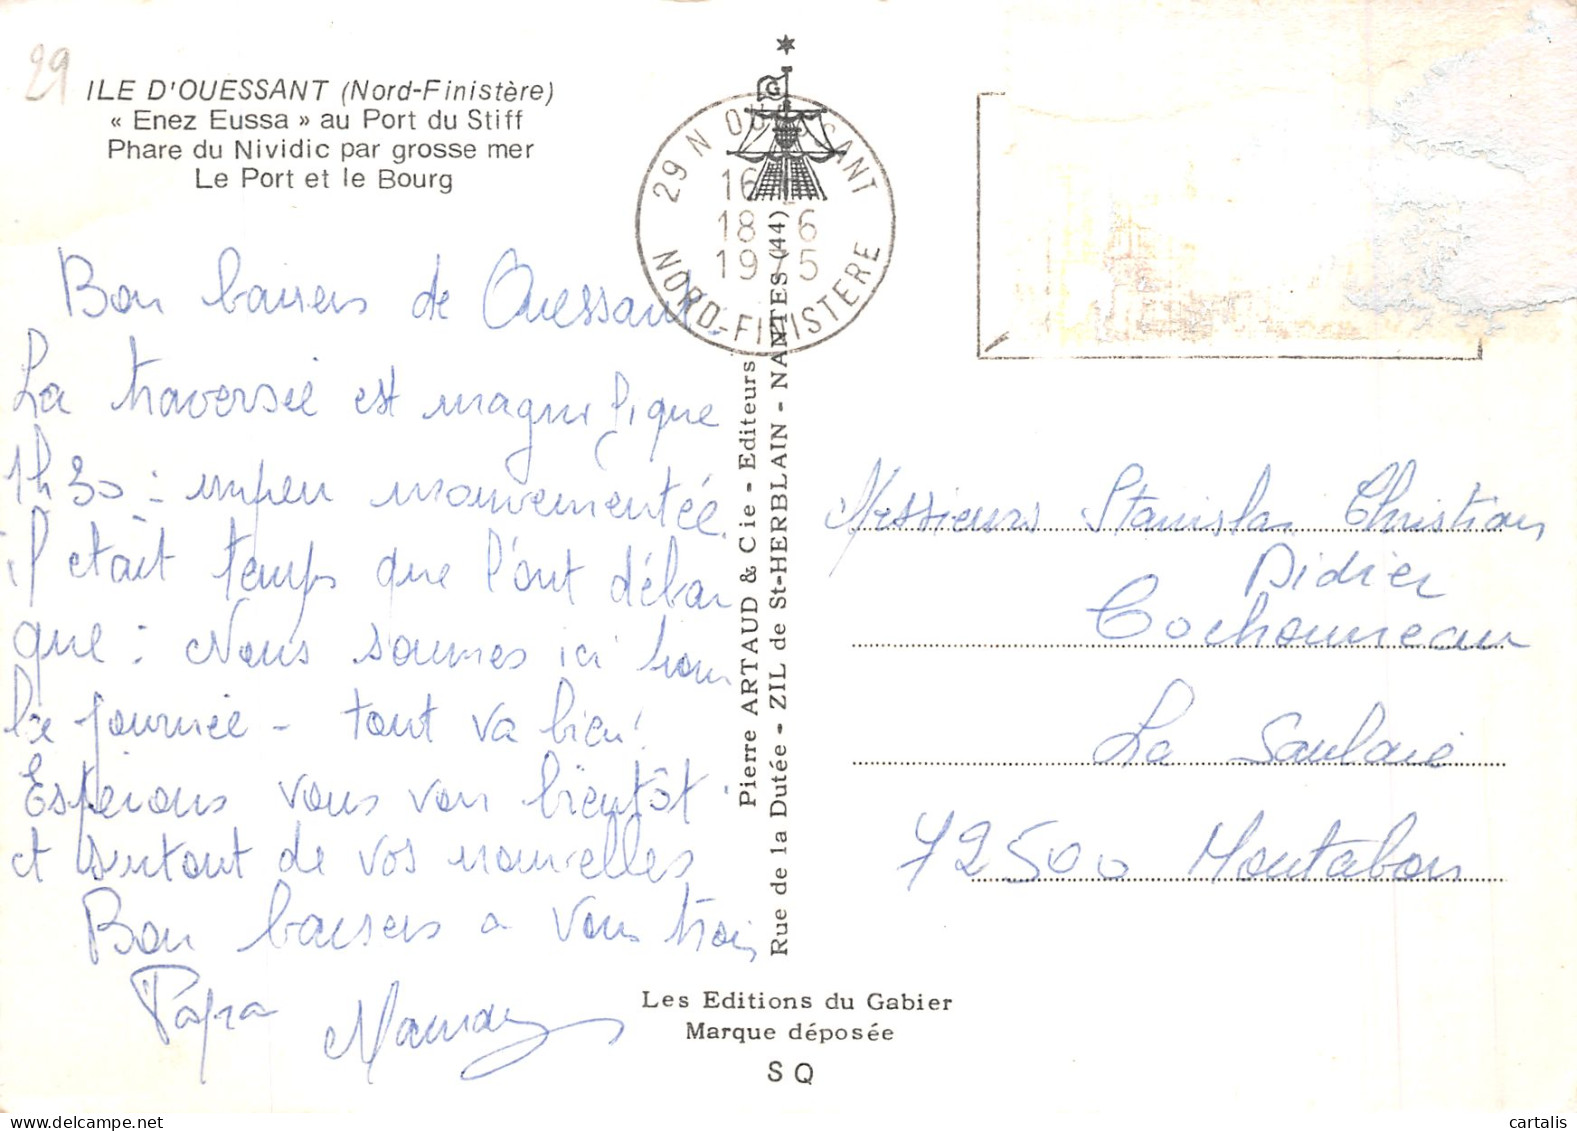 29
ILE D'OUESSANT (Nord-Finistère)
« Enez Eussa » au Port du Stiff
Phare du Nividic par grosse mer
Le Port et le Bourg
Bon baisers de Ouessant.
La traversée est magnifique
1h30 : unpeu mouvementée.
il était temps que l'ont débar
que : Nous sommes ici pour
la journée - tout va bien!
Espérons vous voir bientôt.
et surtout de vos nouvelles
Bon baisers a vous trois
Papa
G
29 N OUESSANT
16
18 6
1975
NORD-FINISTERE
Pierre ARTAUD & Cie - Editeurs
Rue de la Dutée - ZIL de St-HERBLAIN - NANTES (44)
Messieurs Stanislas Christian
Didier
Cochonneau
La Saulaie
72500 Montabon
Les Editions du Gabier
Marque déposée
SQ
cartalis